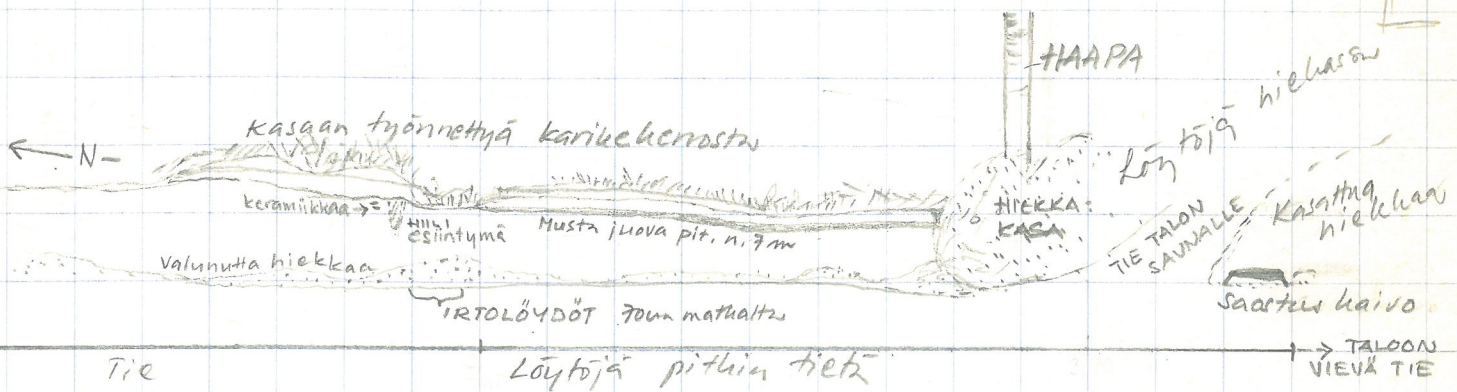 HAAPA
Löytöjä hiekassa
Kasaan työnnettyä karikekerrosta
← N -
keramiikkaa → =
HIILI
esiintymä
Musta juova pit. n. 7 m
HIEKKA
KASA
TIE TALON
SAUNALLE
Kasattua
hiekkaa
Valunutta hiekkaa
IRTOLÖYDÖT matkalta
Saastus kaivo
Tie
Löytöjä pitkin tietä
→ TALOON
VIEVÄ TIE